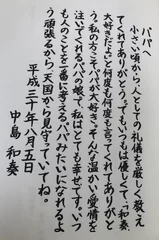 パパへ
小さい頃から人としての礼儀を厳しく教え
てくれてありがとう。でもいつもは優しくて、「和奏
大好きだよ」と何度も何度も言ってくれてありがと
う。私の方こそパパが大好き。そんな温かい愛情を
注いでくれるパパの娘で、私はとても幸せです。いつ
も人のことを一番に考えるパパみたいになれるよ
う頑張るから、天国から見守っていてね。
平成三十年八月五日
中島 和奏